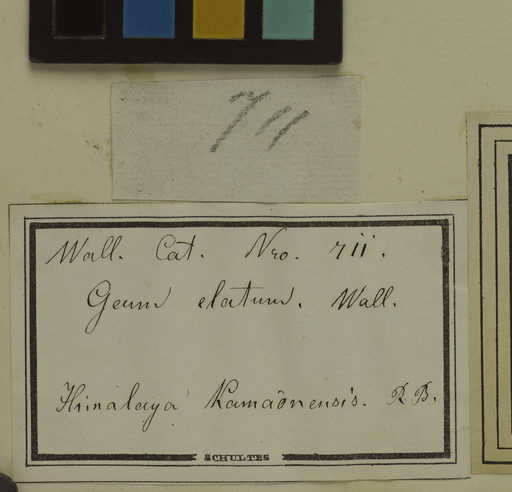 711
Wall. Cat. Nro. 711.
Geum elatum. Wall.
Himalaya Kamaônensis. R B.
SCHULTES